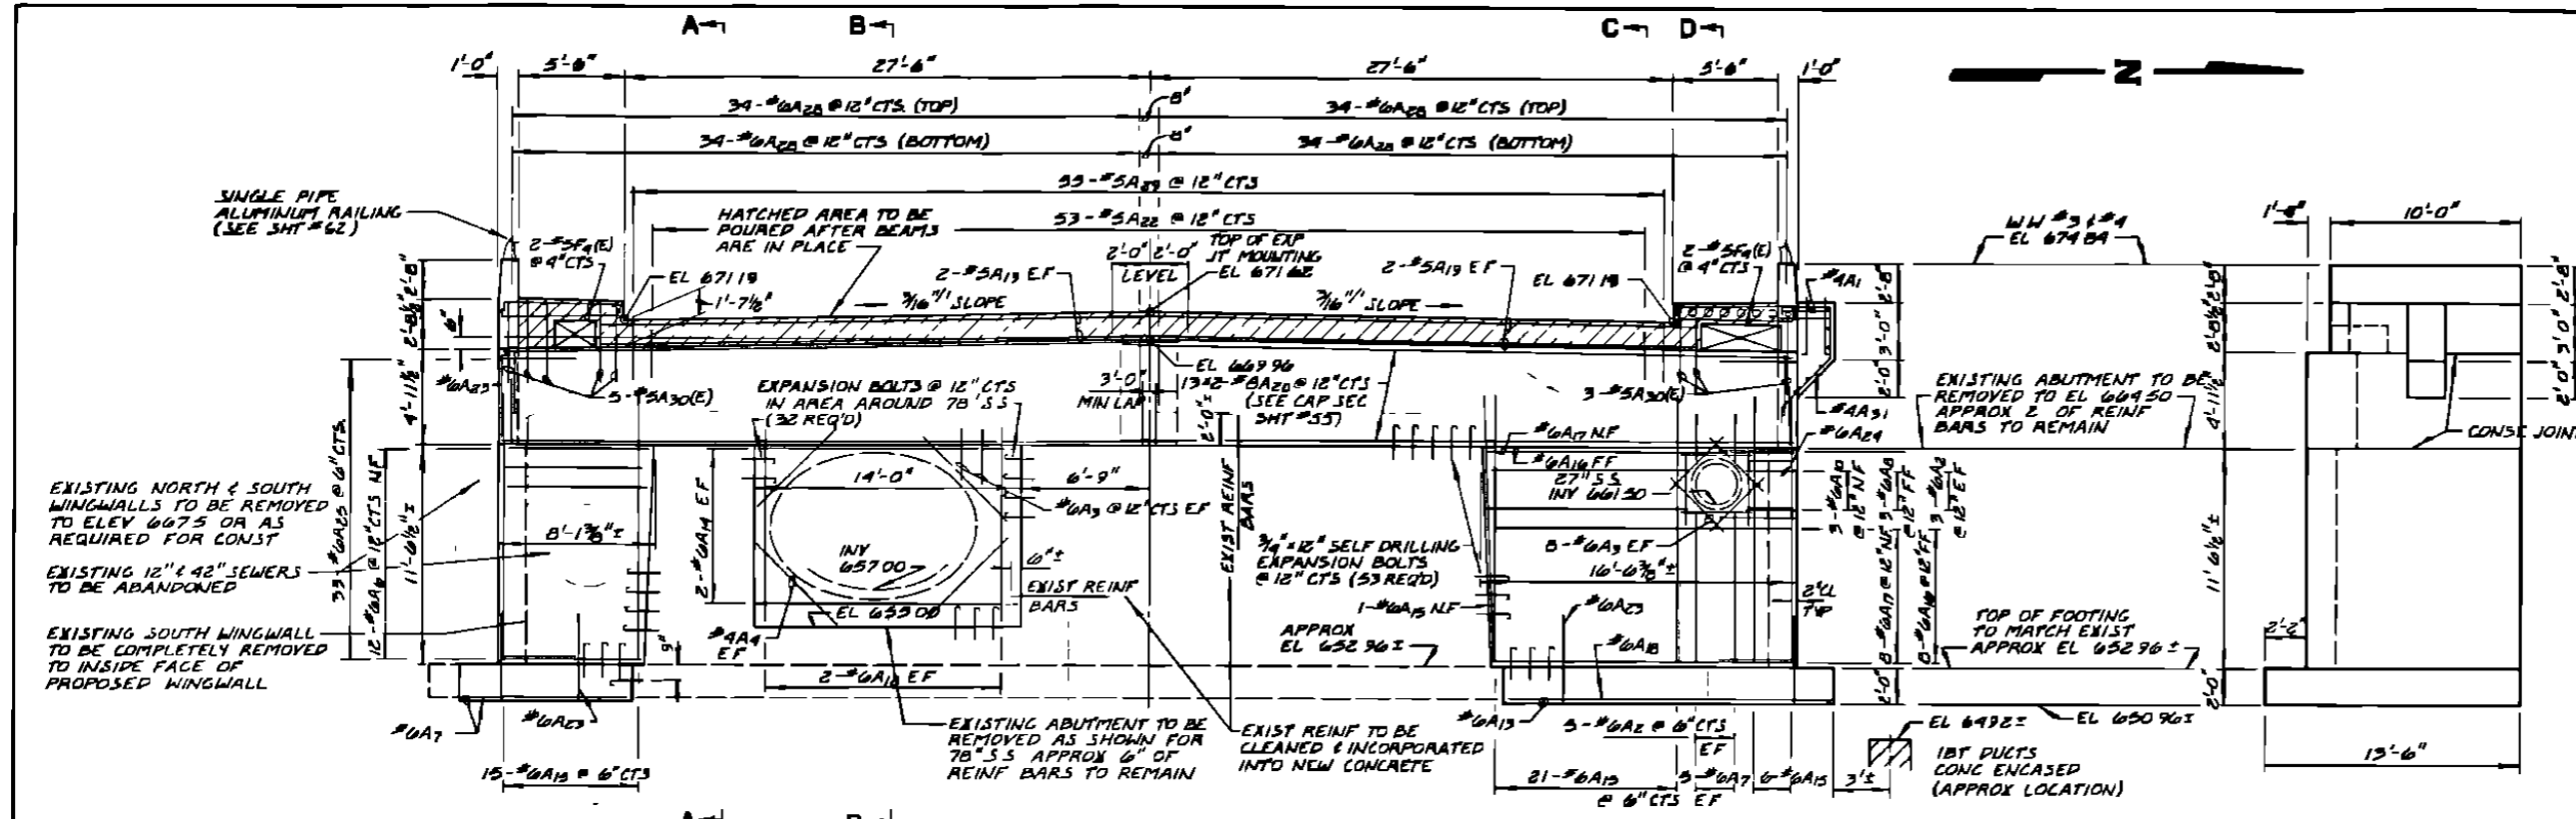 A B C D
1'-0" 5'-6" 27'-6" 27'-6" 5'-6" 1'-0"
N
34-#6A28 @ 12" CTS. (TOP)
8"
34-#6A28 @ 12" CTS (TOP)
34-#6A28 @ 12" CTS (BOTTOM)
8"
34-#6A28 @ 12" CTS (BOTTOM)
@ 12" CTS
53-#5A22 @ 12" CTS
SINGLE PIPE
ALUMINUM RAILING
(SEE SHT #62)
HATCHED AREA TO BE
POURED AFTER BEAMS
ARE IN PLACE
2-#5F4(E)
@ 4" CTS
EL 671 19
1'-7½"
2-#5A13 EF
2'-0" 2'-0"
LEVEL
TOP OF EXP
JT MOUNTING
EL 671 62
2-#5A19 EF
2-#5F4(E)
@ 4" CTS
EL 671 19
3/16"/' SLOPE
3/16"/' SLOPE
#4A1
WW #3 & #4
EL 674 84
10'-0"
2'-8"
2'-8½"
6"
4'-11½"
11'-6½"±
33-#6A25 @ 6" CTS.
12-#6A16 @ 12" CTS NF
#6A23
5-#5A30(E)
EXPANSION BOLTS @ 12" CTS
IN AREA AROUND 78" SS
(32 REQ'D)
EL 669 96
3'-0"
MIN LAP
@ 12" CTS
(SEE CAP SEC
SHT #55)
2'-0"±
3-#5A30(E)
#4A31
#6A24
2'-8"
3'-0"
2'-0"
EXISTING ABUTMENT TO BE
REMOVED TO EL 664 50
APPROX 2 OF REINF
BARS TO REMAIN
CONST JOINT
2'-8"
2'-8½"
3'-0"
2'-0"
4'-11½"
11' 6½"±
2'-0"
EXISTING NORTH & SOUTH
WINGWALLS TO BE REMOVED
TO ELEV 667 5 OR AS
REQUIRED FOR CONST
EXISTING 12" & 42" SEWERS
TO BE ABANDONED
EXISTING SOUTH WINGWALL
TO BE COMPLETELY REMOVED
TO INSIDE FACE OF
PROPOSED WINGWALL
8'-1⅜"±
14'-0"
6'-9"
2-#6A14 EF
#6A3 @ 12" CTS EF
INV
657 00
6"±
EL 655 00
EXIST REINF
BARS
#4A4
EF
9"
EXIST REINF
BARS
#6A17 NF
#6A16 FF
27" S S
INV 661 50
8-#6A3 EF
¾" x 12" SELF DRILLING
EXPANSION BOLTS
@ 12" CTS (53 REQ'D)
16'-6⅜"±
1-#6A15 NF
#6A23
2" CL
TYP
#6A18
3-#6A10
@ 12" NF
3-#6A8
@ 12" FF
3-#6A2
@ 12" EF
8-#6A17 @ 12" NF
8-#6A16 @ 12" FF
2'-0"
APPROX
EL 652 96±
TOP OF FOOTING
TO MATCH EXIST
APPROX EL 652 96±
2'-2"
#6A7
#6A23
2-#6A18 EF
15-#6A13 @ 6" CTS
EXISTING ABUTMENT TO BE
REMOVED AS SHOWN FOR
78" S S APPROX 6" OF
REINF BARS TO REMAIN
EXIST REINF TO BE
CLEANED & INCORPORATED
INTO NEW CONCRETE
#6A13
@ 6" CTS
EF
21-#6A13
@ 6" CTS
EF
6-#6A15
3'±
EL 649 2±
EL 650 96±
IBT DUCTS
CONC ENCASED
(APPROX LOCATION)
13'-6"
A B